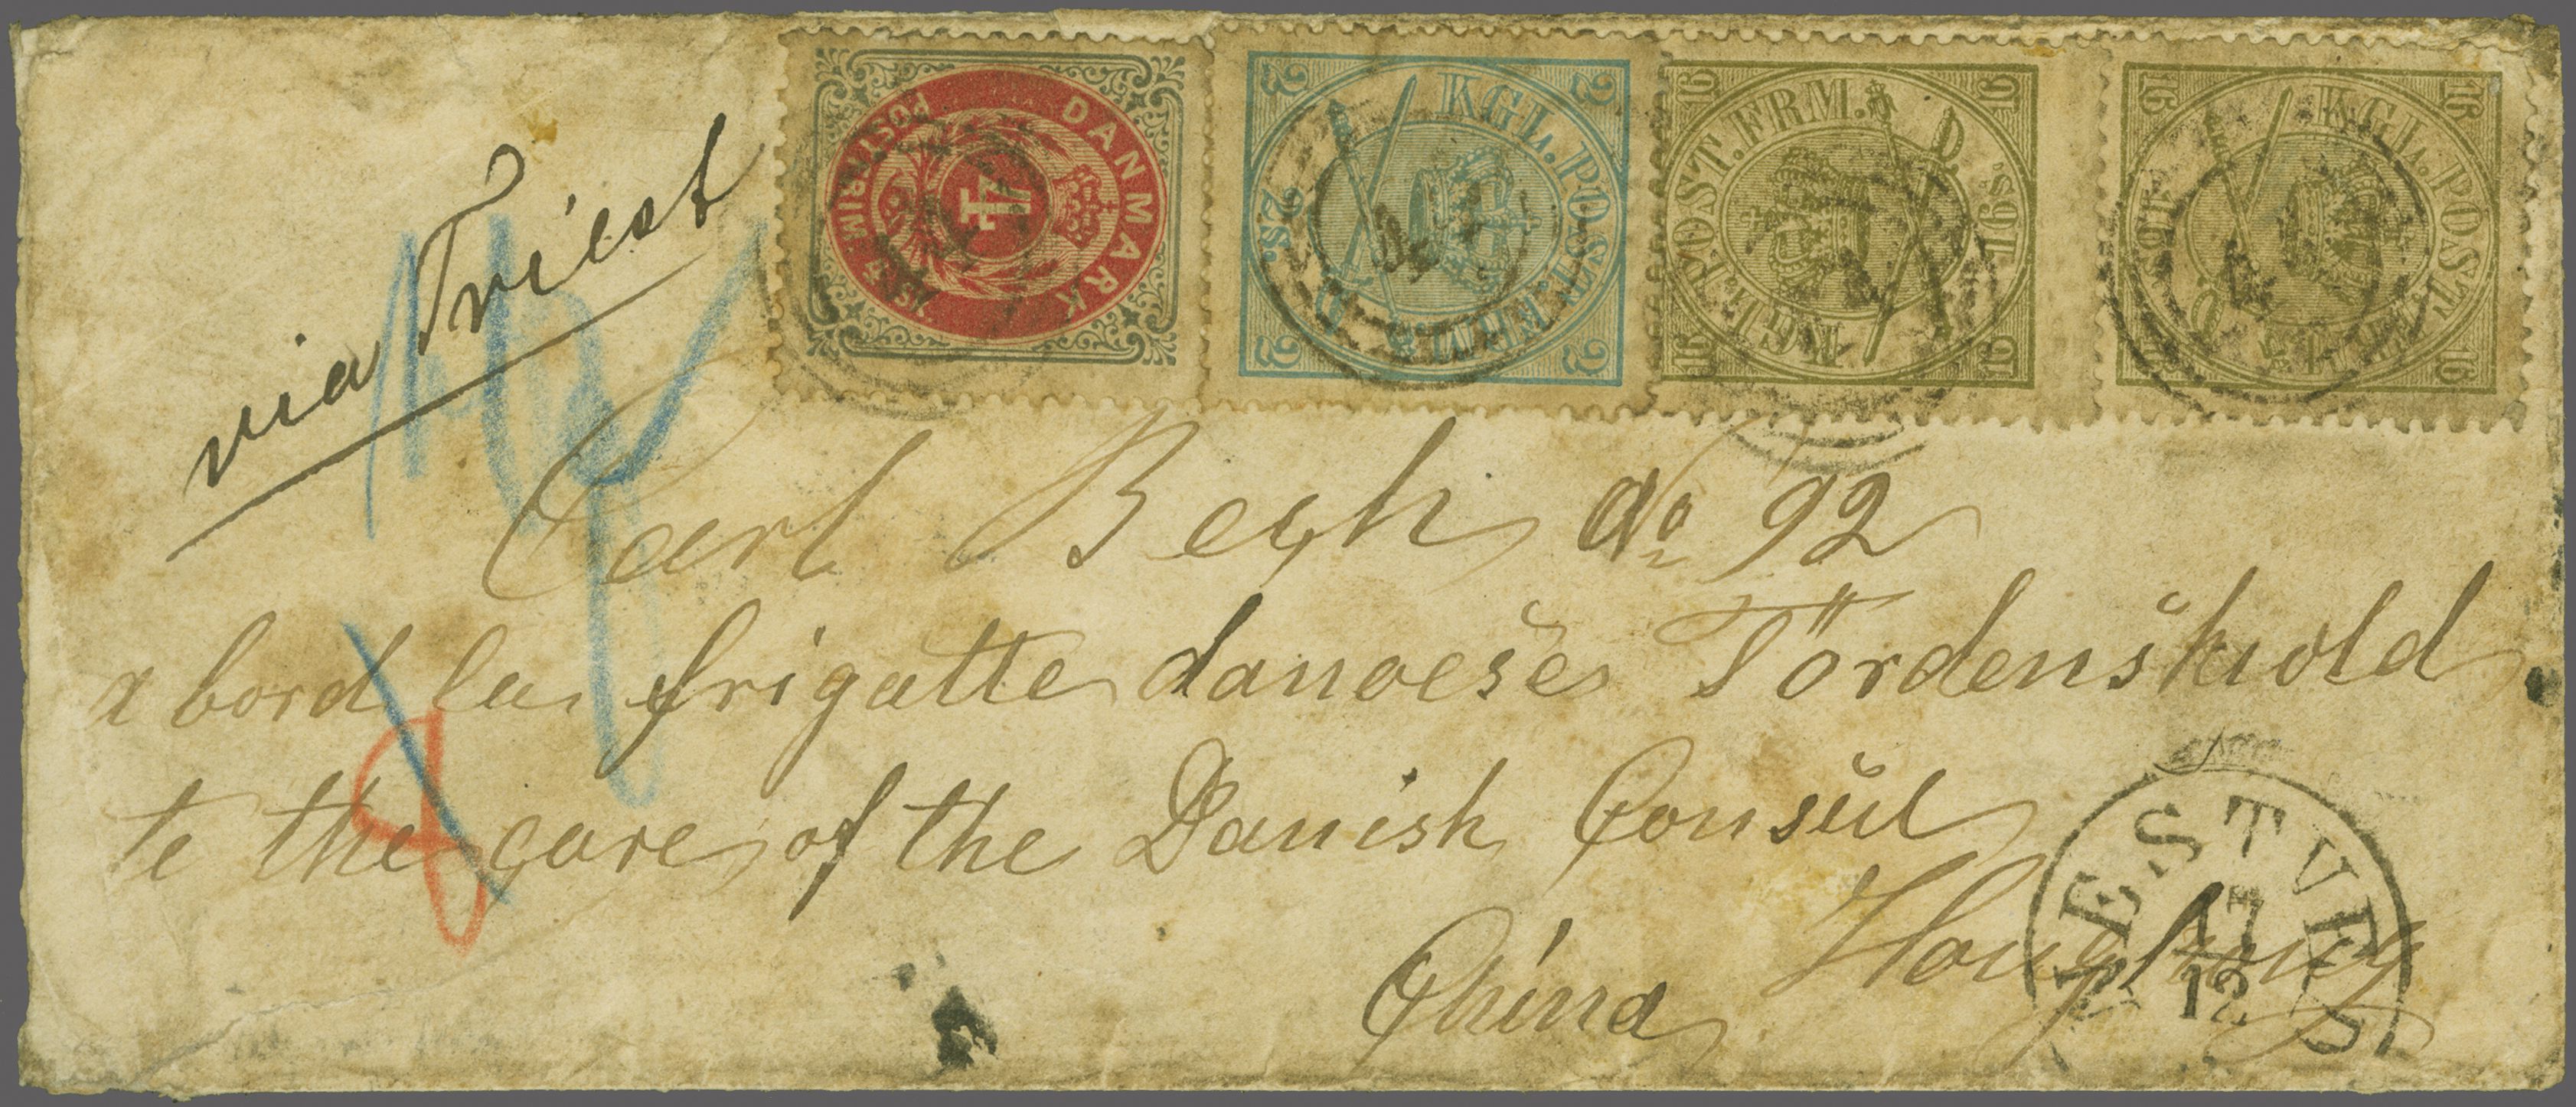 via Triest
DANMARK
POSTFRIM.
4
KGL. POST. FRM.
2 S.
2 2 2 2
KGL. POST. FRM.
D. 16 S.
16 16 16 16
KGL. POST. FRM.
16 S.
16 16 16
Carl Begh No 92
a bord la frigatte danoese Tördenskiold
te the care of the Danish Consul
Hongkong
China
NESTVED
17
12
8